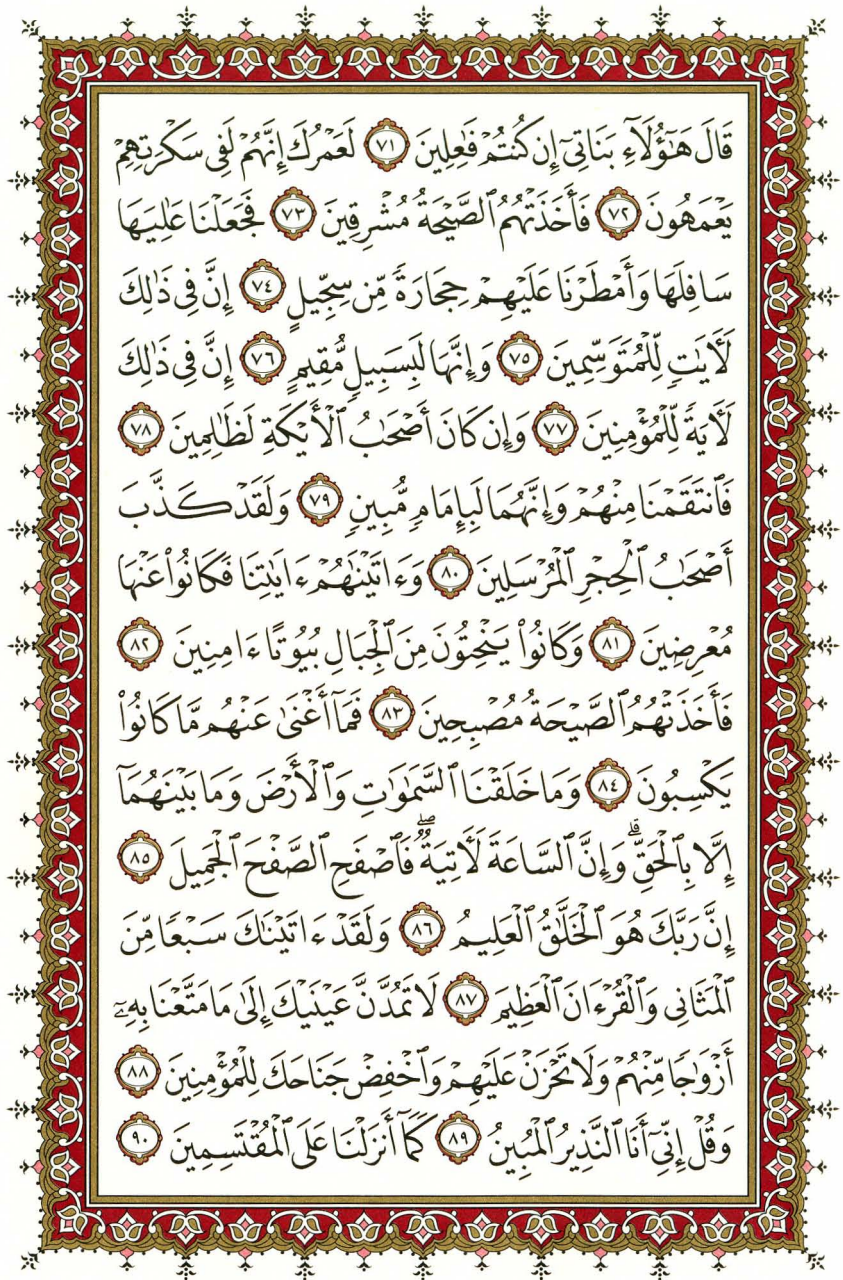 قَالَ هَٰٓؤُلَآءِ بَنَاتِىٓ إِن كُنتُمْ فَٰعِلِينَ ٧١ لَعَمْرُكَ إِنَّهُمْ لَفِى سَكْرَتِهِمْ
يَعْمَهُونَ ٧٢ فَأَخَذَتْهُمُ ٱلصَّيْحَةُ مُشْرِقِينَ ٧٣ فَجَعَلْنَا عَٰلِيَهَا
سَافِلَهَا وَأَمْطَرْنَا عَلَيْهِمْ حِجَارَةً مِّن سِجِّيلٍ ٧٤ إِنَّ فِى ذَٰلِكَ
لَءَايَٰتٍ لِّلْمُتَوَسِّمِينَ ٧٥ وَإِنَّهَا لَبِسَبِيلٍ مُّقِيمٍ ٧٦ إِنَّ فِى ذَٰلِكَ
لَءَايَةً لِّلْمُؤْمِنِينَ ٧٧ وَإِن كَانَ أَصْحَٰبُ ٱلْأَيْكَةِ لَظَٰلِمِينَ ٧٨
فَٱنتَقَمْنَا مِنْهُمْ وَإِنَّهُمَا لَبِإِمَامٍ مُّبِينٍ ٧٩ وَلَقَدْ كَذَّبَ
أَصْحَٰبُ ٱلْحِجْرِ ٱلْمُرْسَلِينَ ٨٠ وَءَاتَيْنَٰهُمْ ءَايَٰتِنَا فَكَانُوا۟ عَنْهَا
مُعْرِضِينَ ٨١ وَكَانُوا۟ يَنْحِتُونَ مِنَ ٱلْجِبَالِ بُيُوتًا ءَامِنِينَ ٨٢
فَأَخَذَتْهُمُ ٱلصَّيْحَةُ مُصْبِحِينَ ٨٣ فَمَآ أَغْنَىٰ عَنْهُم مَّا كَانُوا۟
يَكْسِبُونَ ٨٤ وَمَا خَلَقْنَا ٱلسَّمَٰوَٰتِ وَٱلْأَرْضَ وَمَا بَيْنَهُمَآ
إِلَّا بِٱلْحَقِّ ۗ وَإِنَّ ٱلسَّاعَةَ لَءَاتِيَةٌ ۖ فَٱصْفَحِ ٱلصَّفْحَ ٱلْجَمِيلَ ٨٥
إِنَّ رَبَّكَ هُوَ ٱلْخَلَّٰقُ ٱلْعَلِيمُ ٨٦ وَلَقَدْ ءَاتَيْنَٰكَ سَبْعًا مِّنَ
ٱلْمَثَانِى وَٱلْقُرْءَانَ ٱلْعَظِيمَ ٨٧ لَا تَمُدَّنَّ عَيْنَيْكَ إِلَىٰ مَا مَتَّعْنَا بِهِۦٓ
أَزْوَٰجًا مِّنْهُمْ وَلَا تَحْزَنْ عَلَيْهِمْ وَٱخْفِضْ جَنَاحَكَ لِلْمُؤْمِنِينَ ٨٨
وَقُلْ إِنِّىٓ أَنَا ٱلنَّذِيرُ ٱلْمُبِينُ ٨٩ كَمَآ أَنزَلْنَا عَلَى ٱلْمُقْتَسِمِينَ ٩٠